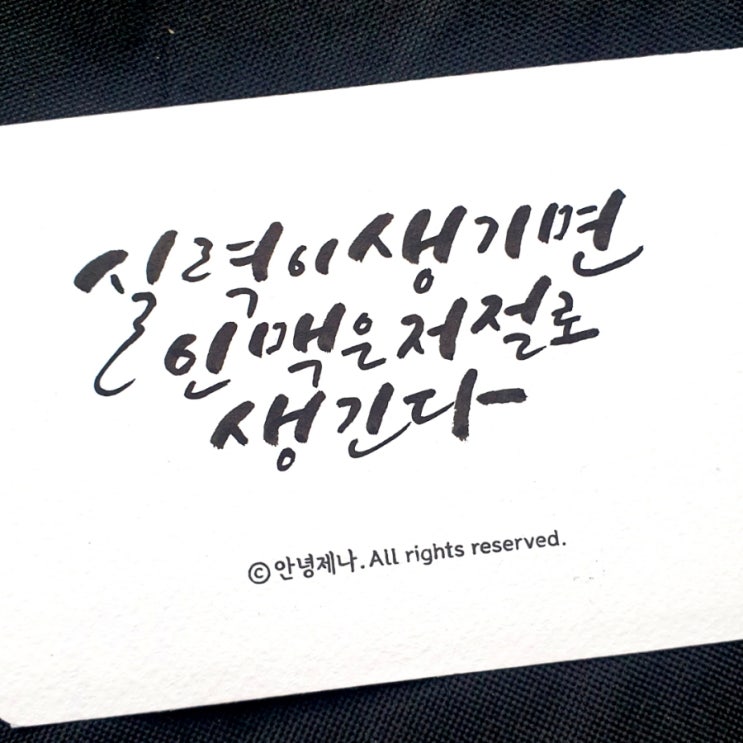 실력이 생기면
인맥은 저절로
생긴다-
©안녕제나. All rights reserved.